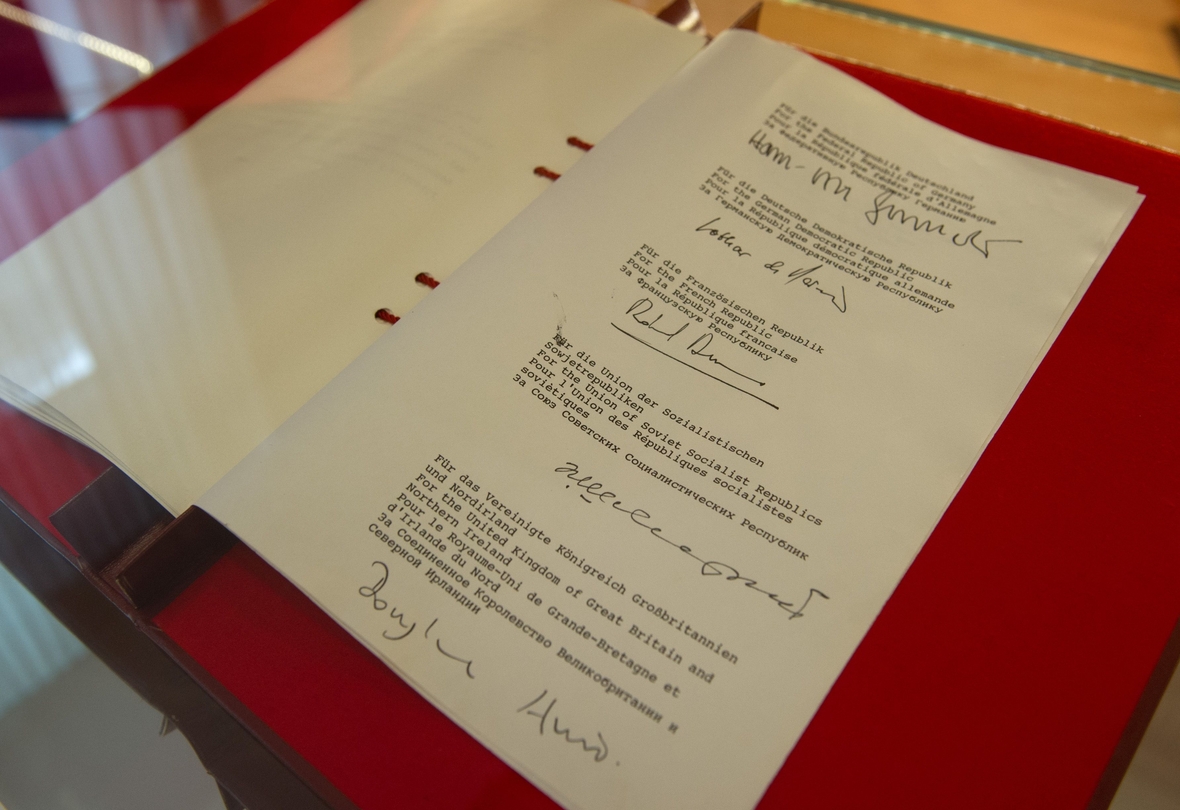 Für die Bundesrepublik Deutschland
For the Federal Republic of Germany
Pour la République fédérale d'Allemagne
За Федеративную Республику Германию
Für die Deutsche Demokratische Republik
For the German Democratic Republic
Pour la République démocratique allemande
За Германскую Демократическую Республику
Lothar de
Für die Französischen Republik
For the French Republic
Pour la République francaise
За Французскую Республику
Für die Union der Sozialistischen
Sowjetrepubliken
For the Union of Soviet Socialist Republics
Pour l'Union des Républiques socialistes
soviétiques
За Союз Советских Социалистических Республик
Für das Vereinigte Königreich Großbritannien
und Nordirland
For the United Kingdom of Great Britain and
Northern Ireland
Pour le Royaume-Uni de Grande-Bretagne et
d'Irlande du Nord
За Соединенное Королевство Великобритании и
Северной Ирландии
Douglas
Hurd.